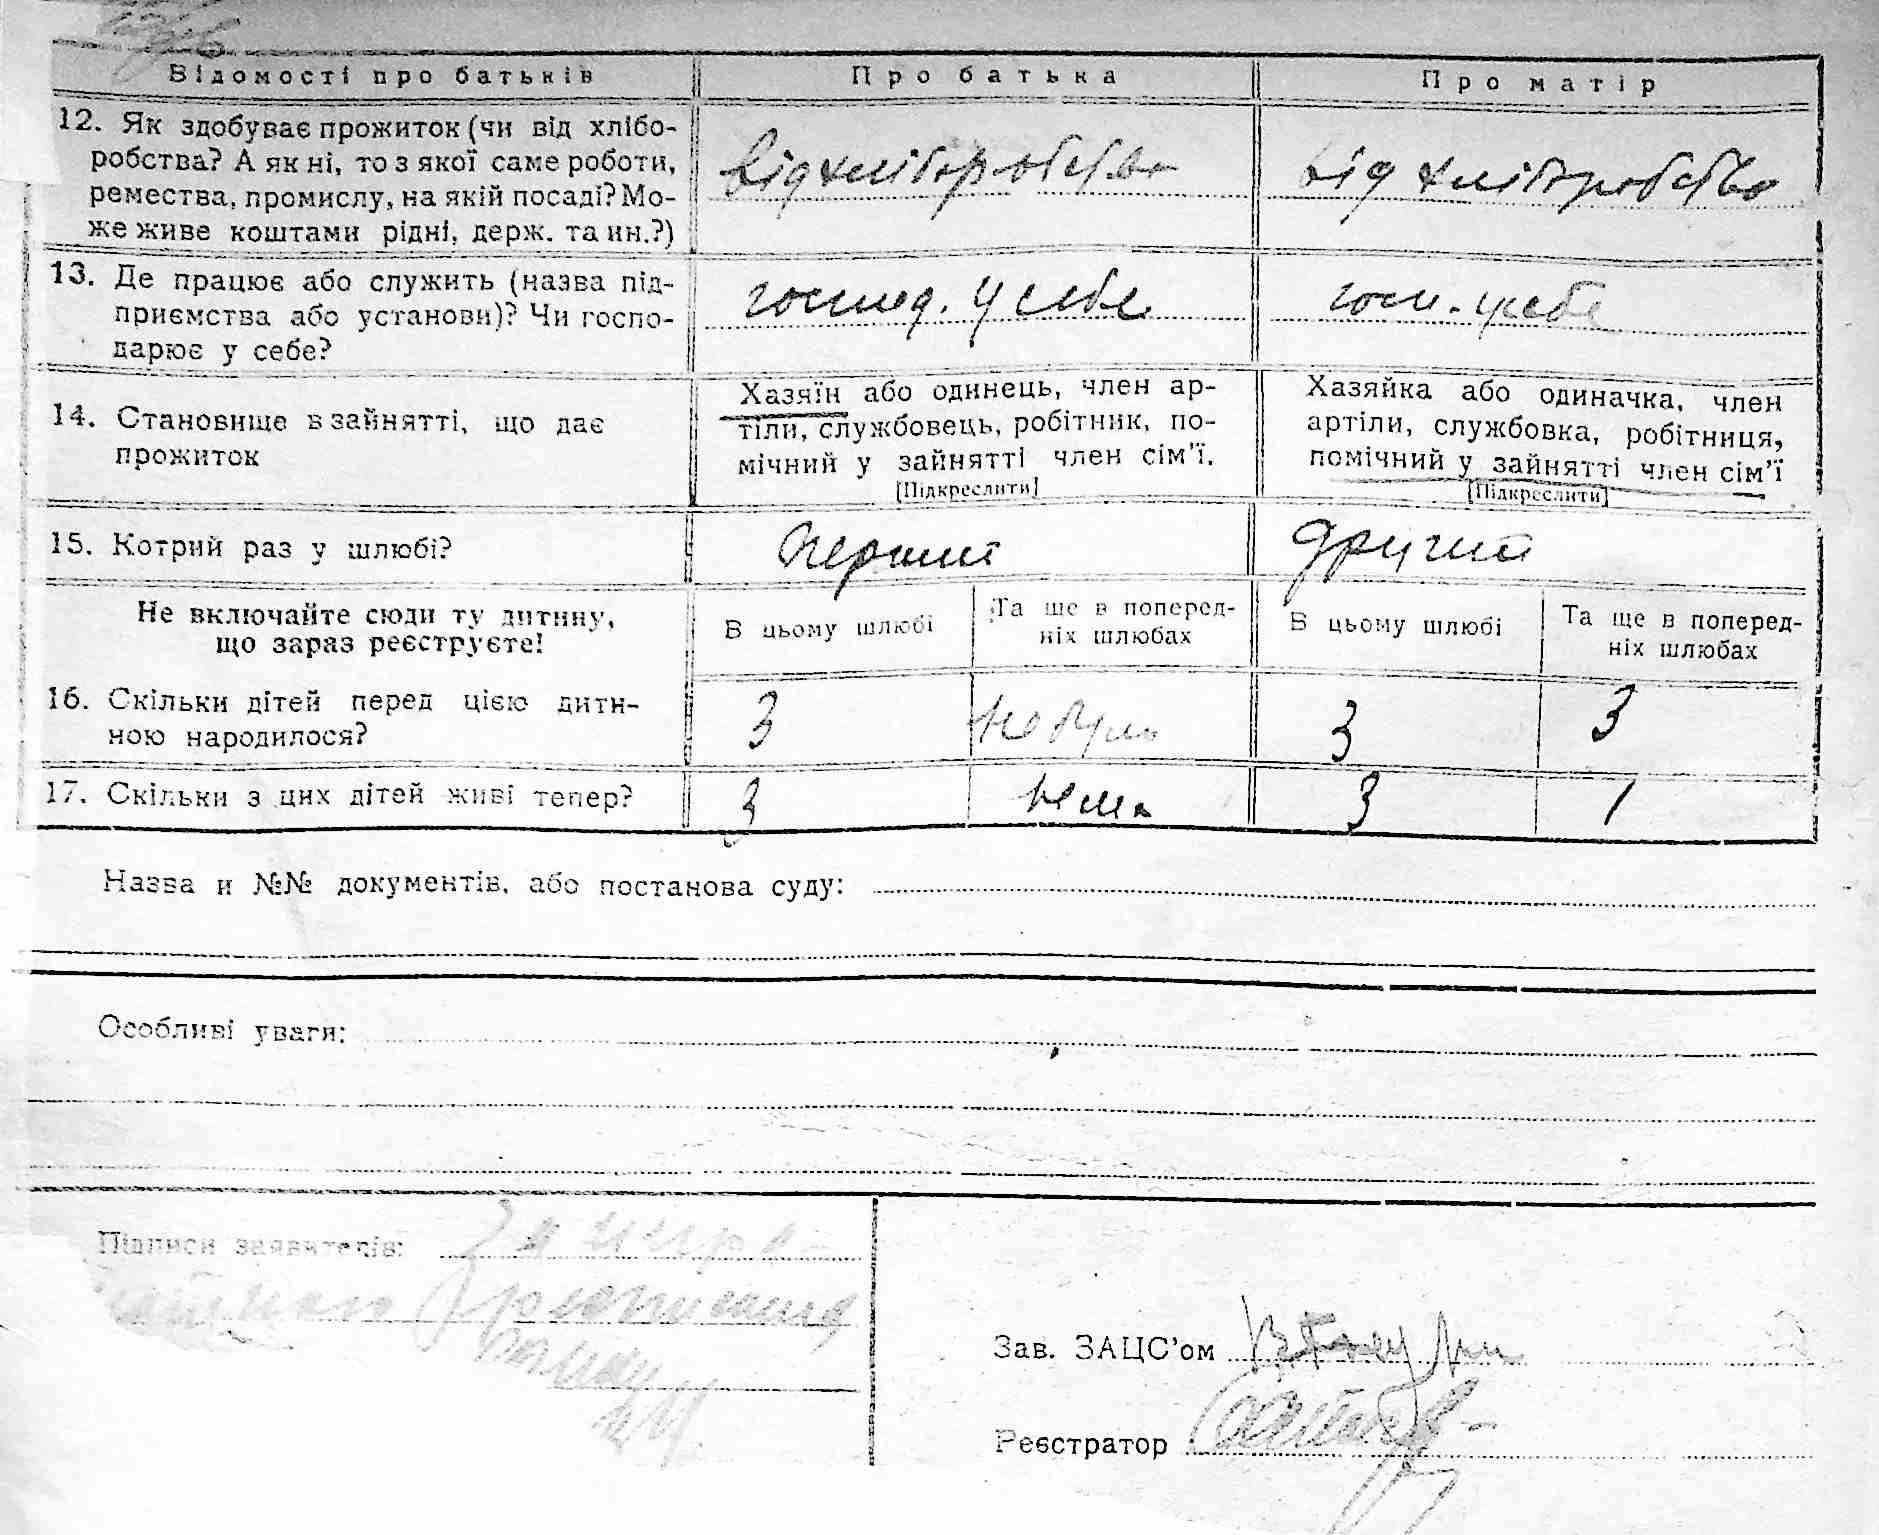 Відомості про батьків Про батька Про матір
12. Як здобуває прожиток (чи від хлібо-
робства? А як ні, то з якої саме роботи,
ремества, промислу, на якій посаді? Мо-
же живе коштами рідні, держ. та ин.?)
від хліборобства від хліборобства
13. Де працює або служить (назва під-
приємства або установи)? Чи госпо-
дарює у себе?
господ. у себе госп. у себе
14. Становище в зайнятті, що дає
прожиток
Хазяїн або одинець, член ар-
тіли, службовець, робітник, по-
мічний у зайнятті член сім'ї.
[Підкреслити]
Хазяйка або одиначка, член
артіли, службовка, робітниця,
помічний у зайнятті член сім'ї
[Підкреслити]
15. Котрий раз у шлюбі? перший другий
Не включайте сюди ту дитину,
що зараз реєструєте!
В цьому шлюбі
Та ще в поперед-
ніх шлюбах
В цьому шлюбі
Та ще в поперед-
ніх шлюбах
16. Скільки дітей перед цією дити-
ною народилося?
3 не було 3 3
17. Скільки з цих дітей живі тепер? 3 нема 3 1
Назва и №№ документів, або постанова суду:
Особливі уваги:
Підписи заявителів: За
Зав. ЗАЦС'ом
Реєстратор